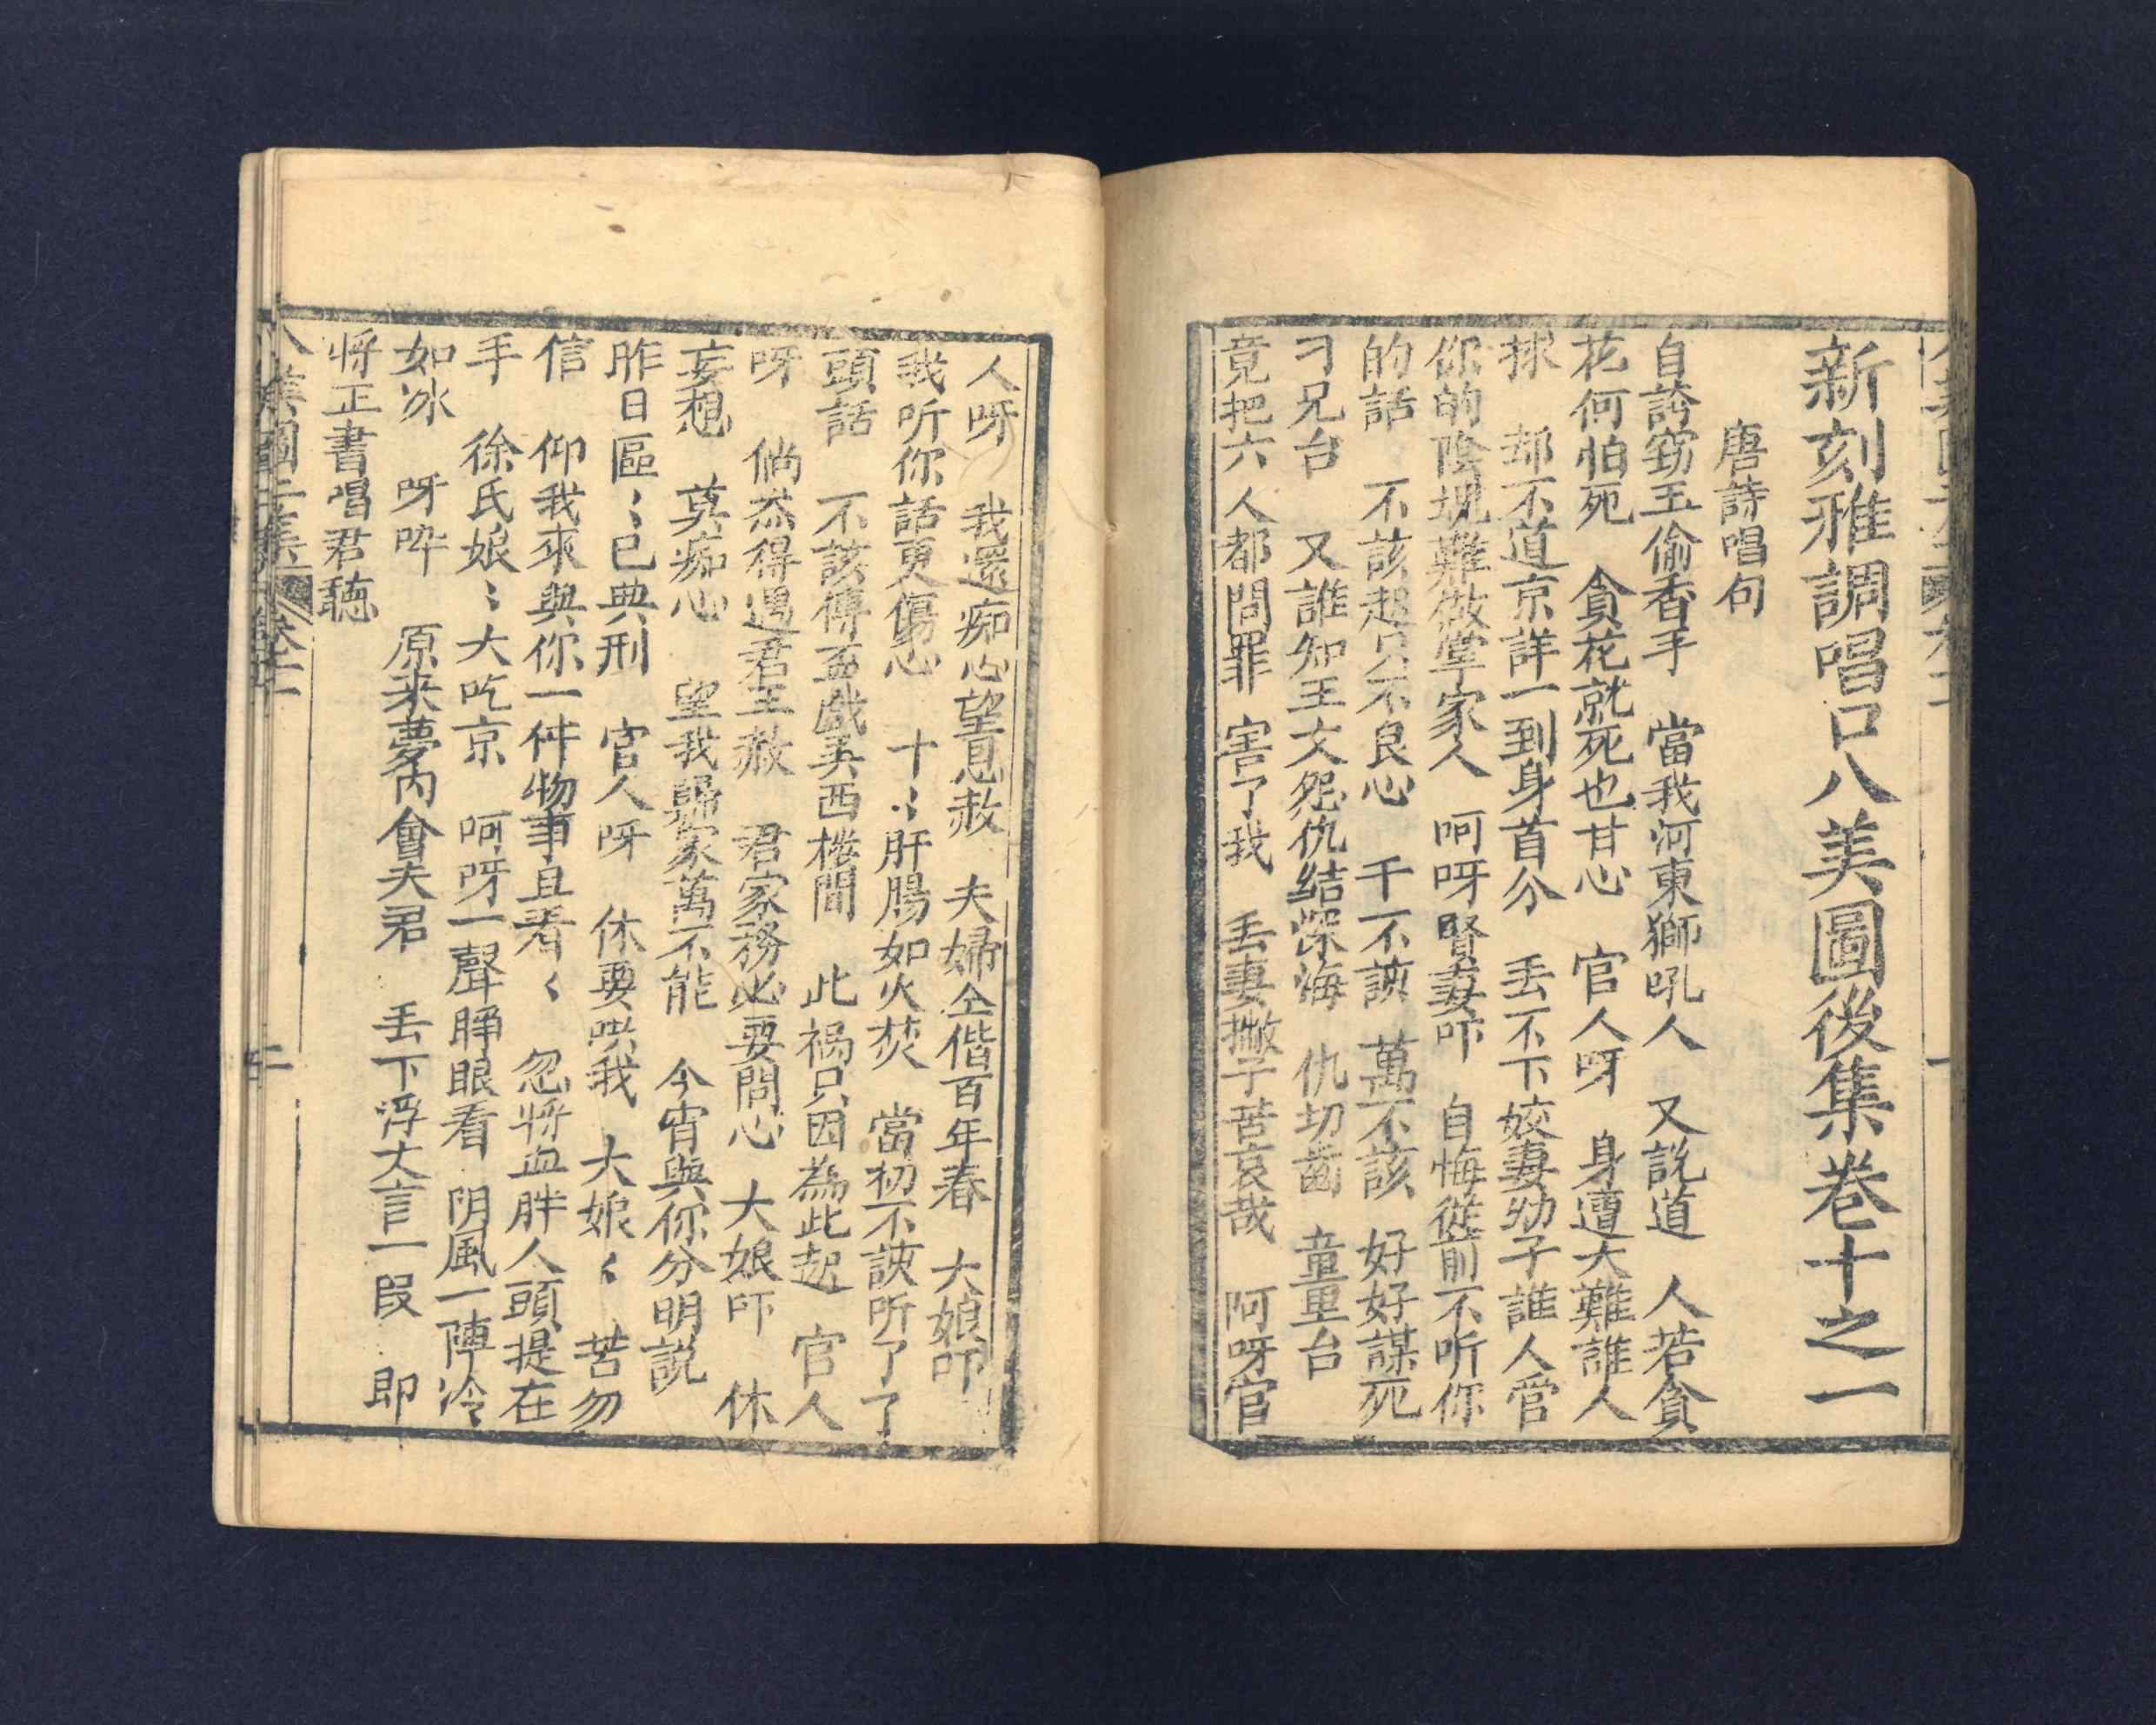 新刻雅調唱口八美圖後集卷十之一
唐詩唱句
自誇窃玉偷香手 當我河東獅吼人 又説道 人若貪
花何怕死 貪花就死也甘心 官人呀 身遭大難誰人
捄 却不道京詳一到身首分 丢不下姣妻幼子誰人管
你的陰塊難做掌家人 呵呀賢妻吓 自悔從前不听你
的話 不該起只不良心 千不該 萬不該 好好謀死
刁兄台 又誰知王文怨仇結深海 仇切齒 童里台
竟把六人都問罪 害了我 丢妻撇子苦哀哉 阿呀官
人呀 我還痴心望恩赦 夫婦仝偕百年春 大娘吓
我听你話更傷心 十〻肝腸如火焚 當初不該听了了
頭話 不該傅盃戲美西楼間 此禍只因為此起 官人
呀 倘然得遇君王赦 君家務必要問心 大娘吓 休
妄想 莫痴心 望我歸家萬不能 今宵與你分明説
昨日區〻已典刑 官人呀 休要哄我 大娘〻 苦勿
信 仰我來與你一件物事且看〻 忽將血胖人頭提在
手 徐氏娘〻大吃京 呵呀一聲睜眼看 阴風一陣冷
如冰 呀啐 原来夢內會夫君 丢下浮文言一段 即
將正書唱君聽
八美圖 二